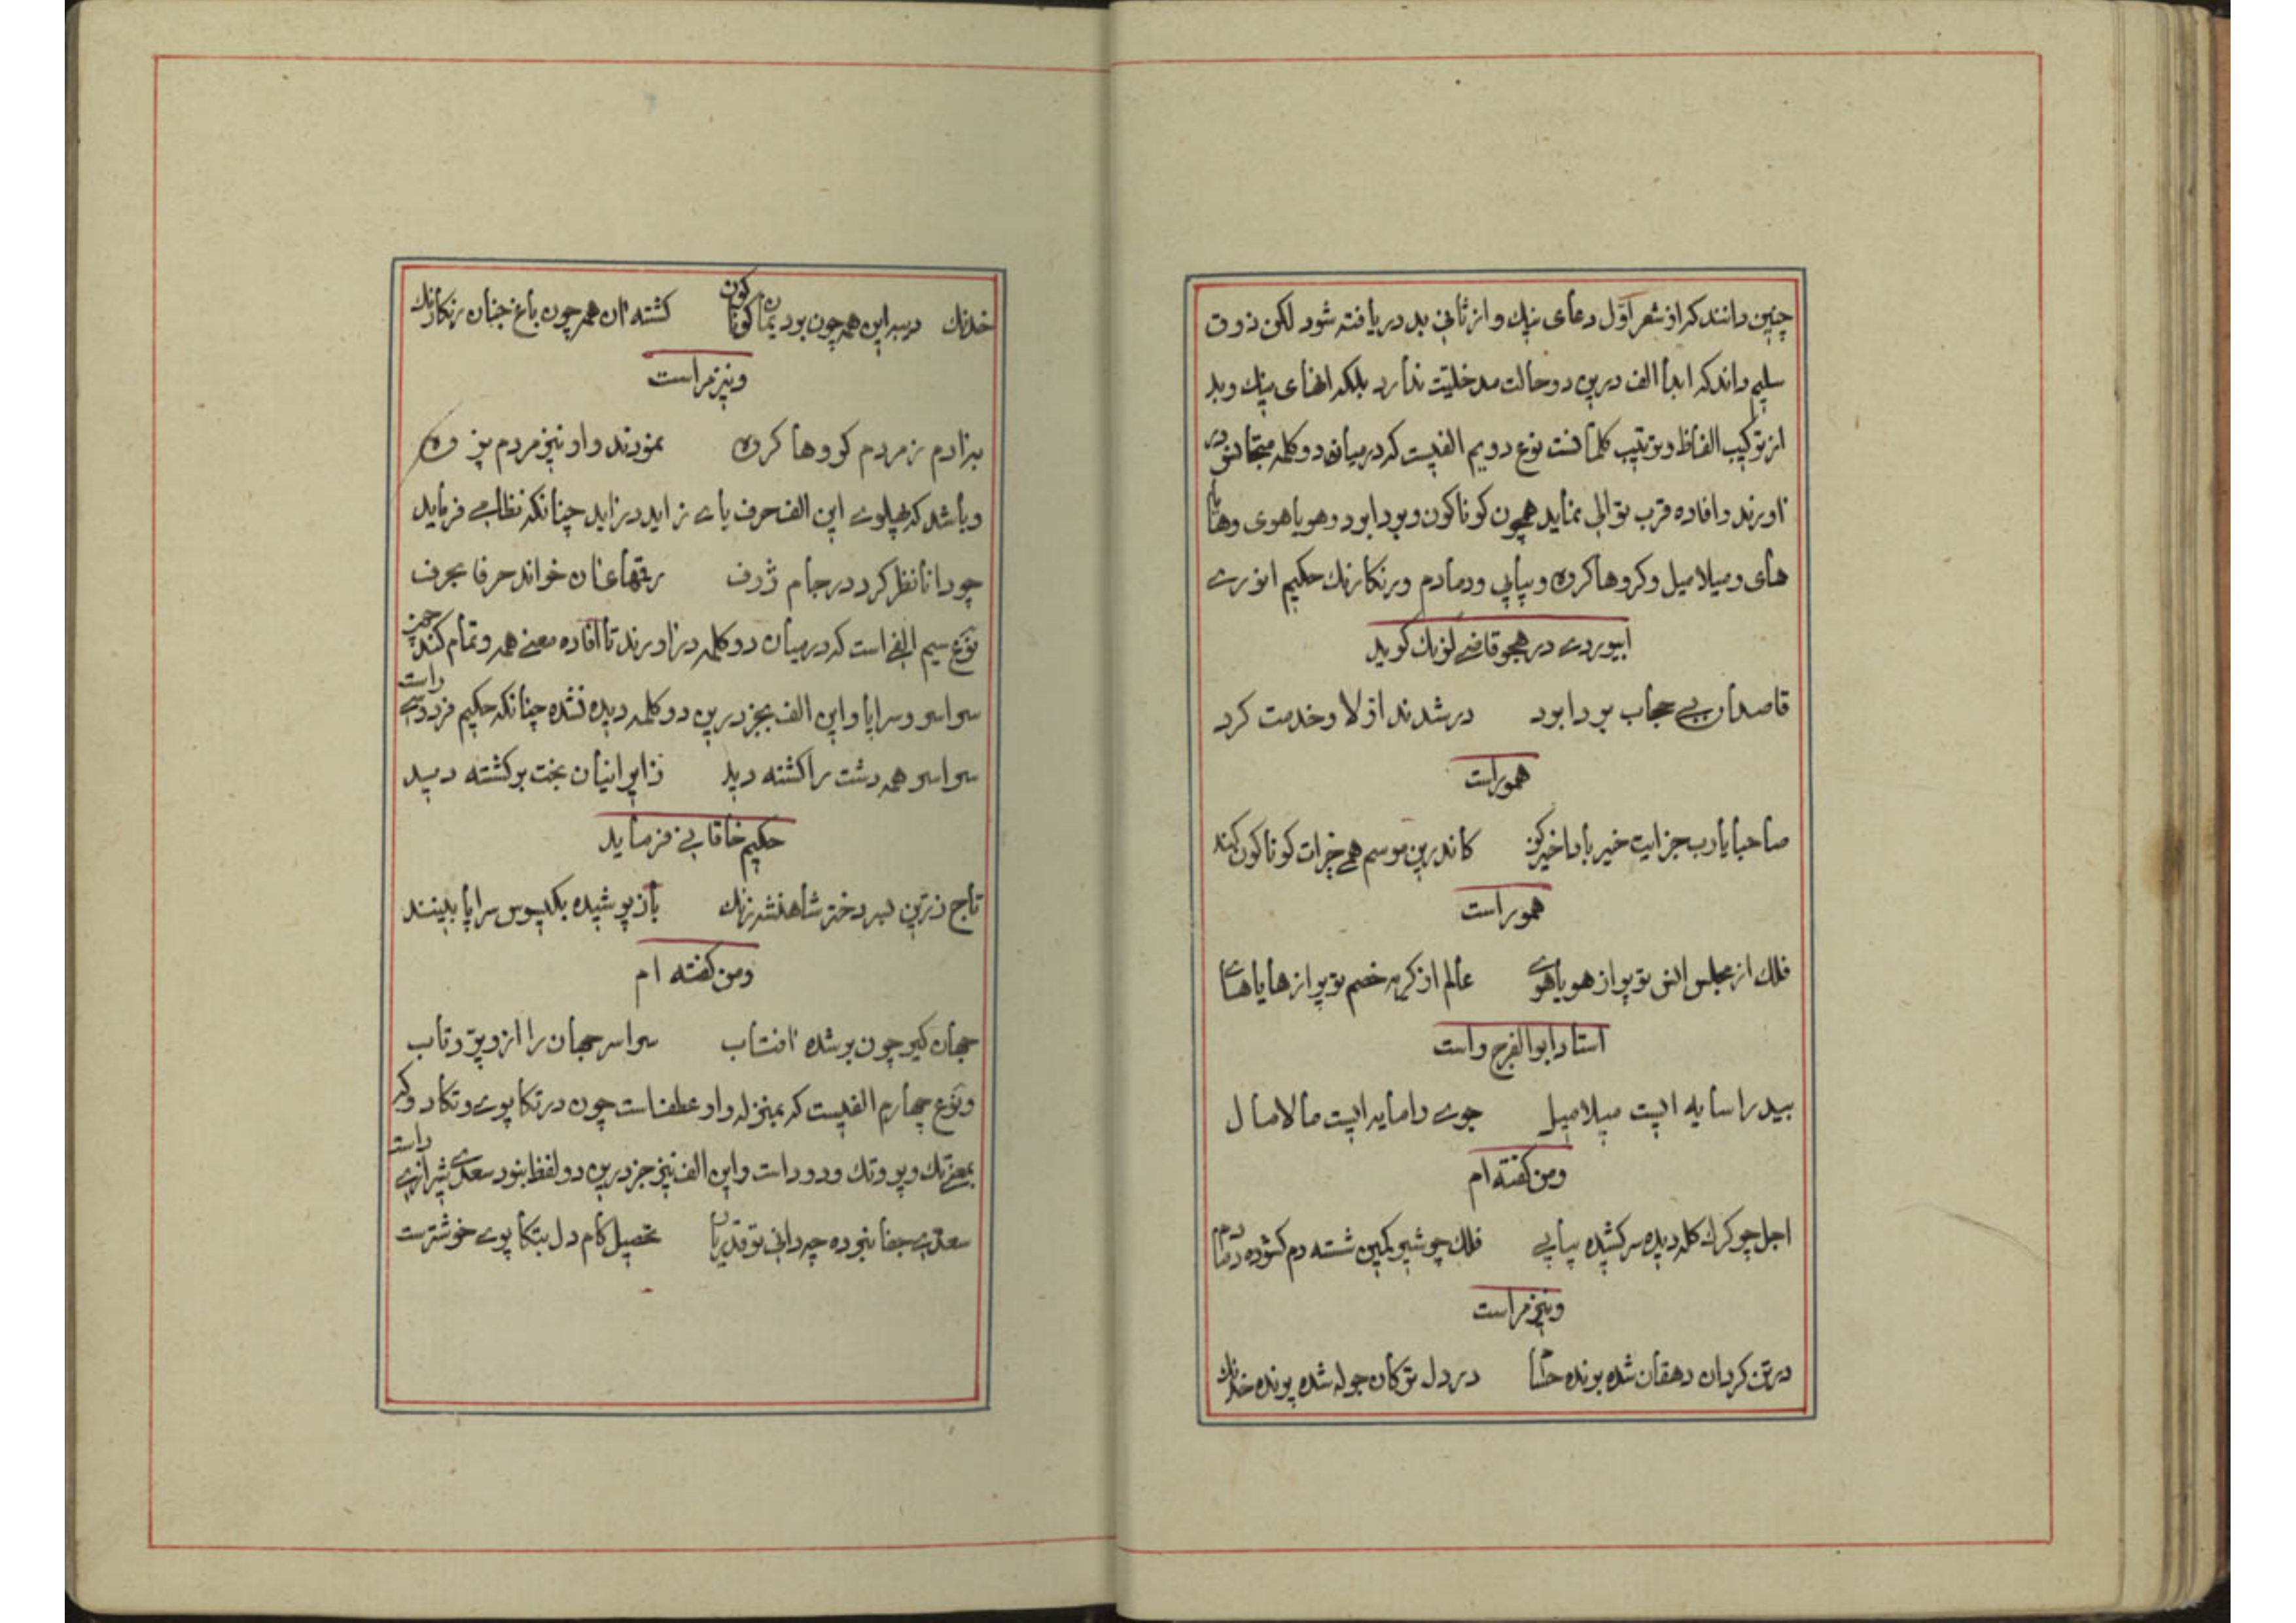 چنین دانند که از شعر اوّل دعای نیك و از ثانی بد دریافته شود لکن ذوق
سلیم داند که ابدا الف درین دو حالت مدخلیّت ندارد بلکه انهای نیك و بد
از ترکیب الفاظ و ترتیب کلماتست نوع دویم الفیست که در میان دو کلمه متجانس در
آورند و افاده قرب توالی نماید همچون کوناکون و بودابود و هویاهوی و هایا
های و میلامیل و کروهاکروه و پیاپی و دمادم و رنکارنك حکیم انوری
ابیوردی در هجو قاضی لونك کوید
قاصدان بی حجاب بودابود درشدند از لا و خدمت کرد
هموراست
صاحبا یارب جزایت خیر بادا خیر کز کاندرین موسم همی خیرات کوناکون کنند
هموراست
فلك از مجلس انس تو پر از هویاهوی عالم از کریه خصم تو پر از هایاهای
استاد ابوالفرج راست
بید را سایه ایست میلامیل جوی را مایه ایست مالامال
و من کفته ام
اجل چو کرك کله دیده سر کشیده پیاپی فلك چو شیر بکمین شسته دم کشوده دمادم
و نیز مراست
در تن کردان دهقان شده برنده در دل ترکان جوله شده پرنده خدنك
خدنك در ببر این همه چون بود یمان کوناکون کشته آن همه چون باغ جنان رنکارنك
و نیز مراست
بزادم ز مردم کروهاکروه نمودند و او نیز مردم پژوه
و باشد که بپهلوی این الف حرف یای زاید در آید چنانکه نظامی فرماید
چو دانا نظر کرد در جام ژرف رقمهای آن خواند حرفا بحرف
نوع سیم الفی است که در میان دو کلمه در آورند تا افاده معنی همه و تمام کند چون
سراسر و سراپا و این الف بجز درین دو کلمه دیده نشده چنانکه حکیم فردوسی راست
سراسر همه دشت را کشته دید ز ایرانیان بخت برکشته دید
حکیم خاقانی فرماید
تاج زرّین بسر دختر شاهنشه زنك باز پوشیده بکیسوش سراپا بینند
و من کفته ام
جهان کیر چون بر شده آفتاب سراسر جهان را ازو پرّ و تاب
و نوع چهارم الفیست که بمنزله واو عطفست چون در تکاپوی و تکادو که
بمعنی تك و پو و تك و دو است و این الف نیز جز درین دو لفظ نبود سعدی شیرازی راست
سعدی جفا نبرده چه دانی تو قدر یار تحصیل کام دل بتکاپوی خوشترست